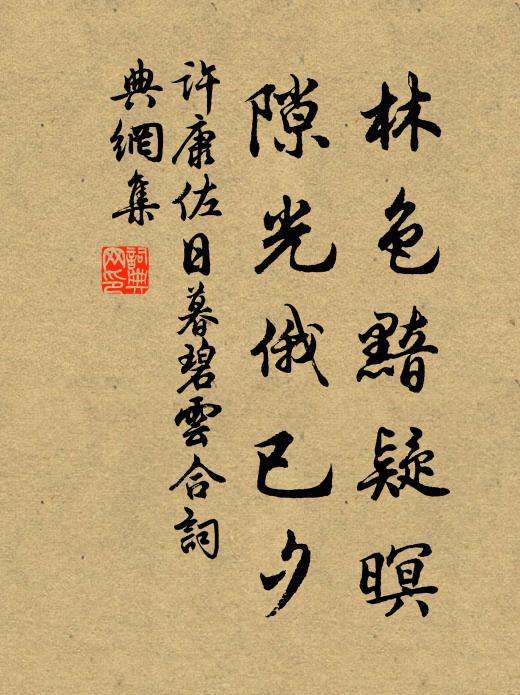 林色黯疑暝
隙光俄已夕
許康佐日暮碧雲合詞
典網集
詞典網印